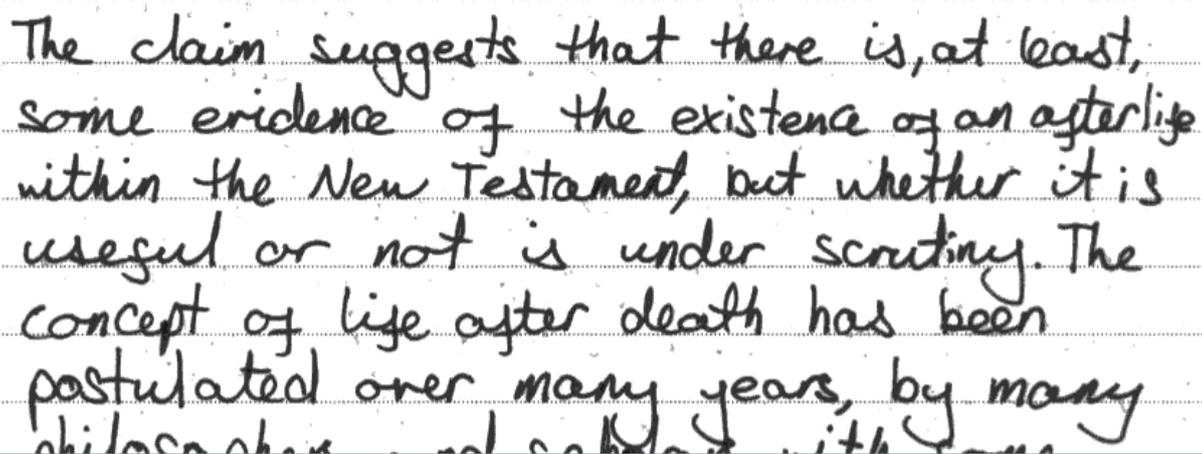 The claim suggests that there is, at least,
some evidence of the existence of an afterlife
within the New Testament, but whether it is
useful or not is under scrutiny. The
concept of life after death has been
postulated over many years, by many
philosophers and scholars with some